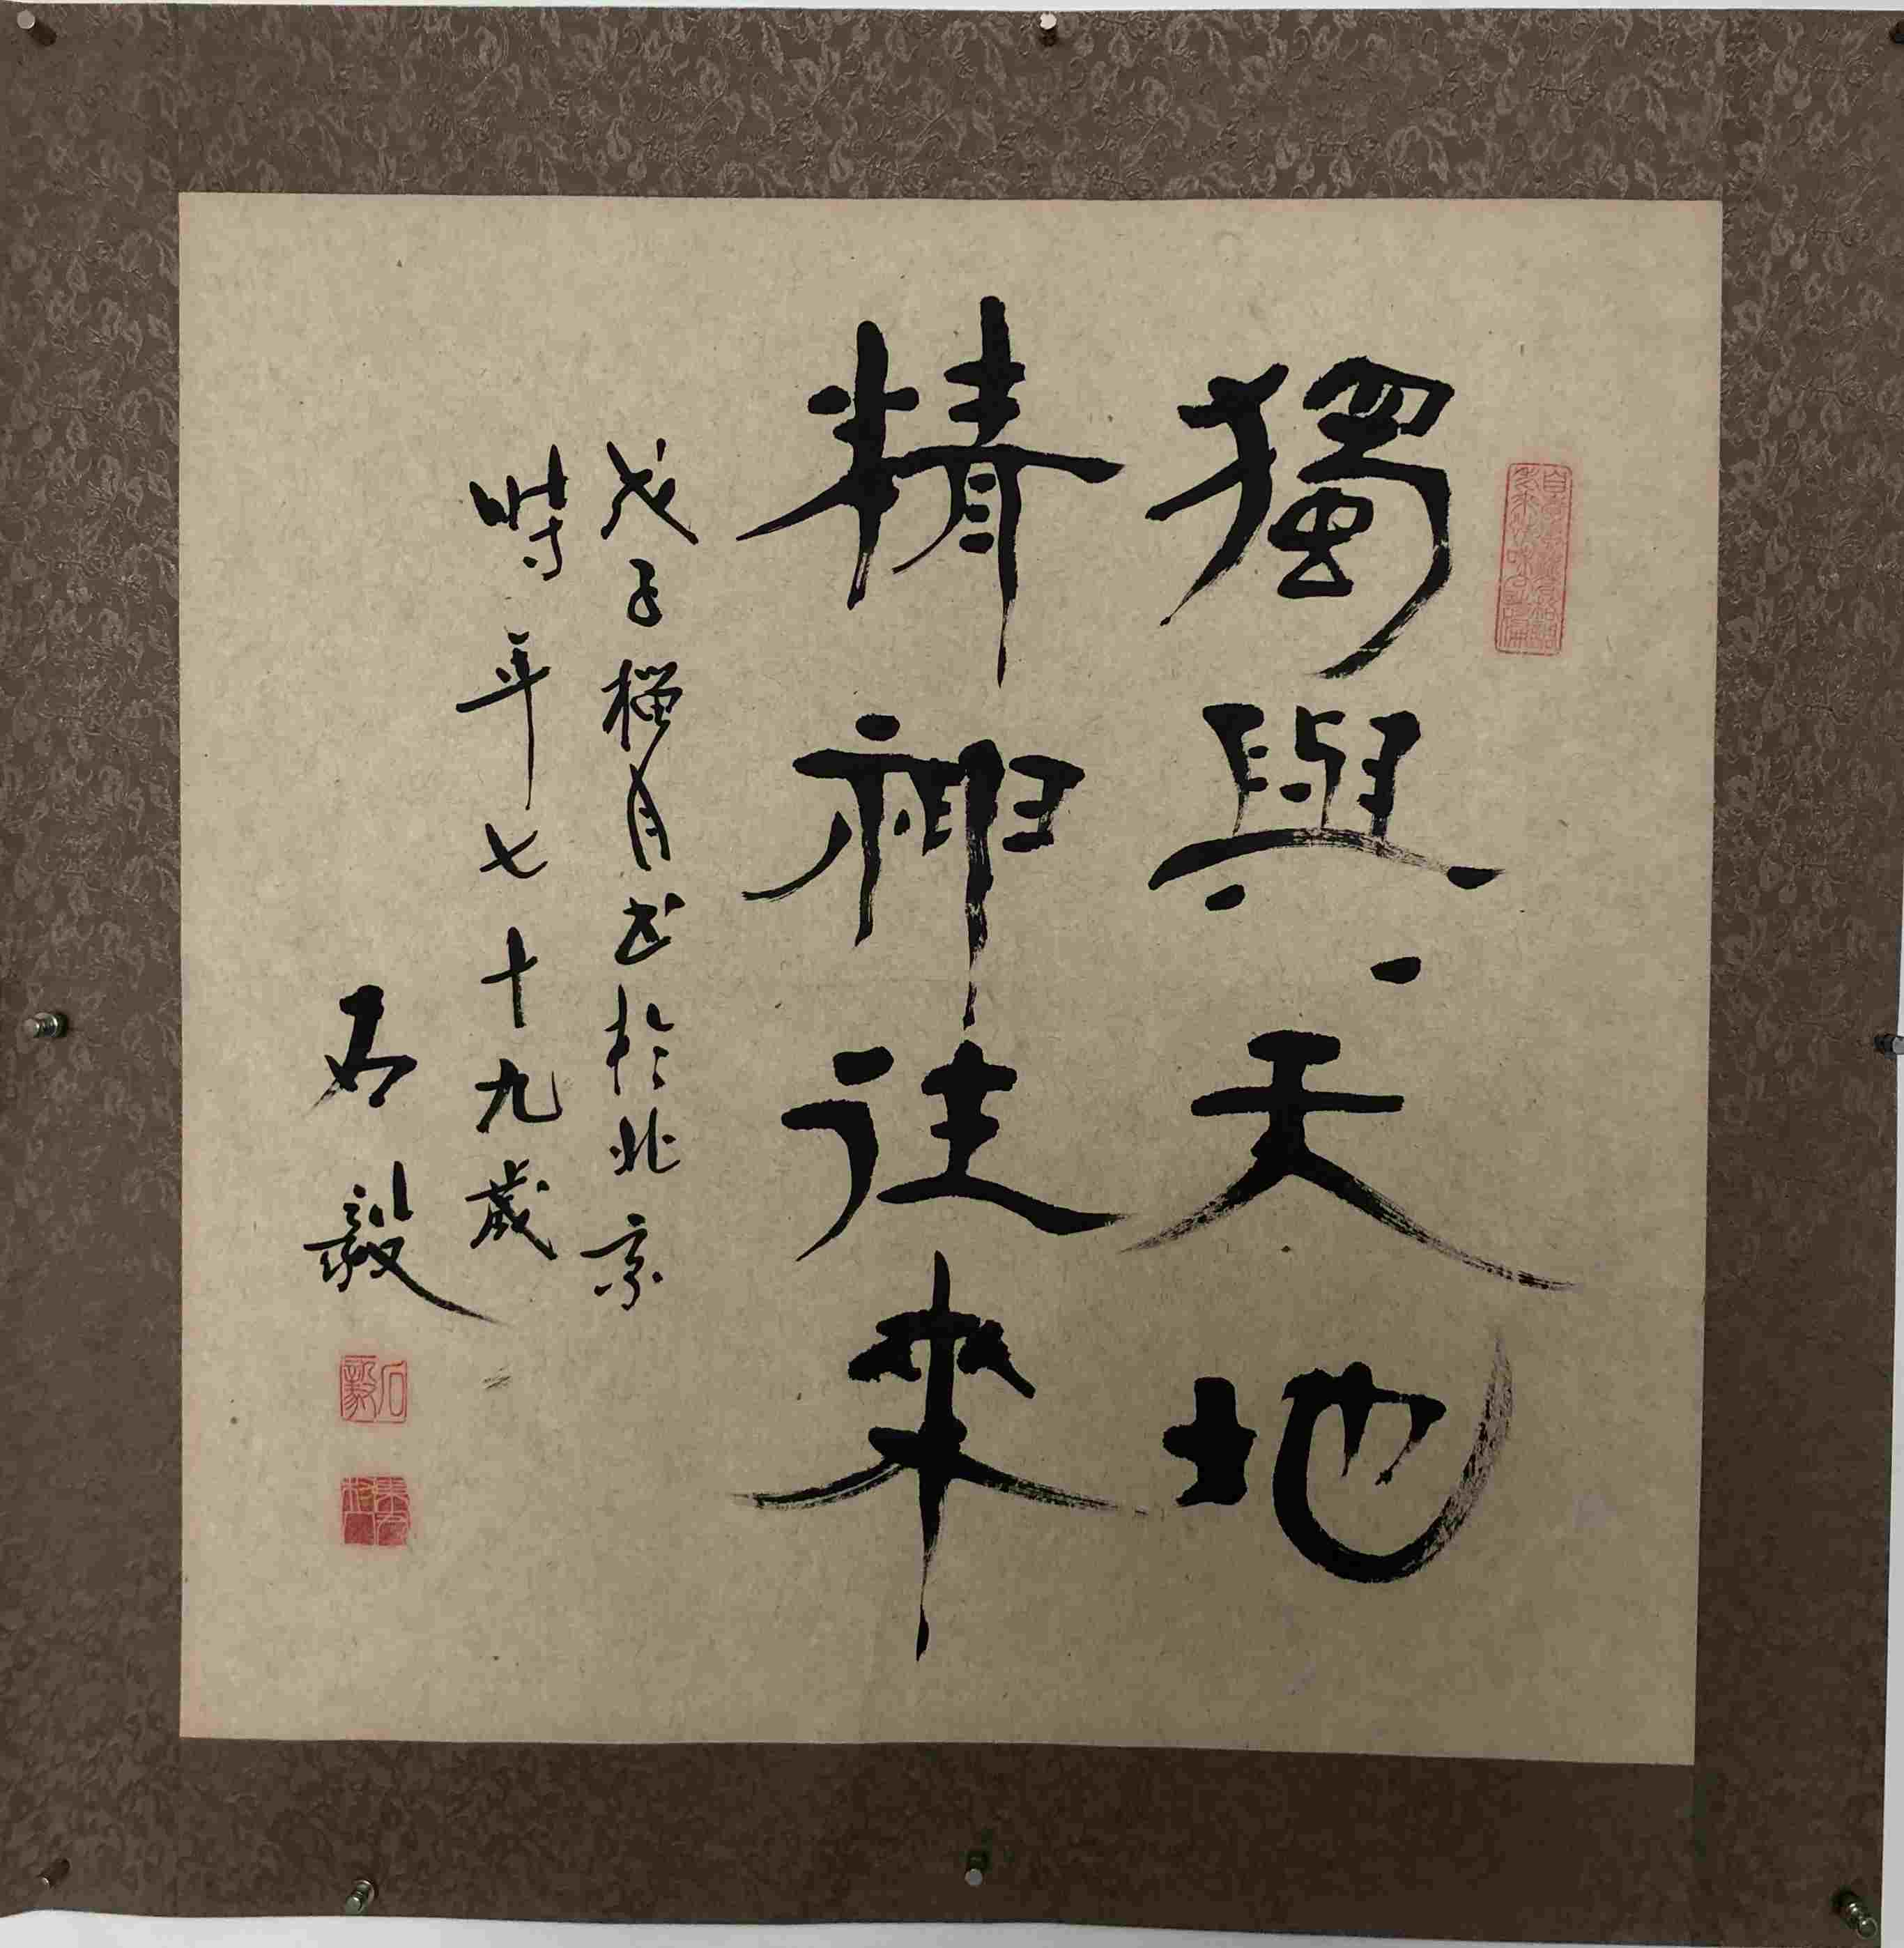 獨與天地
精神往來
戊子榴月书於北京
時年七十九歲
石毅
石毅